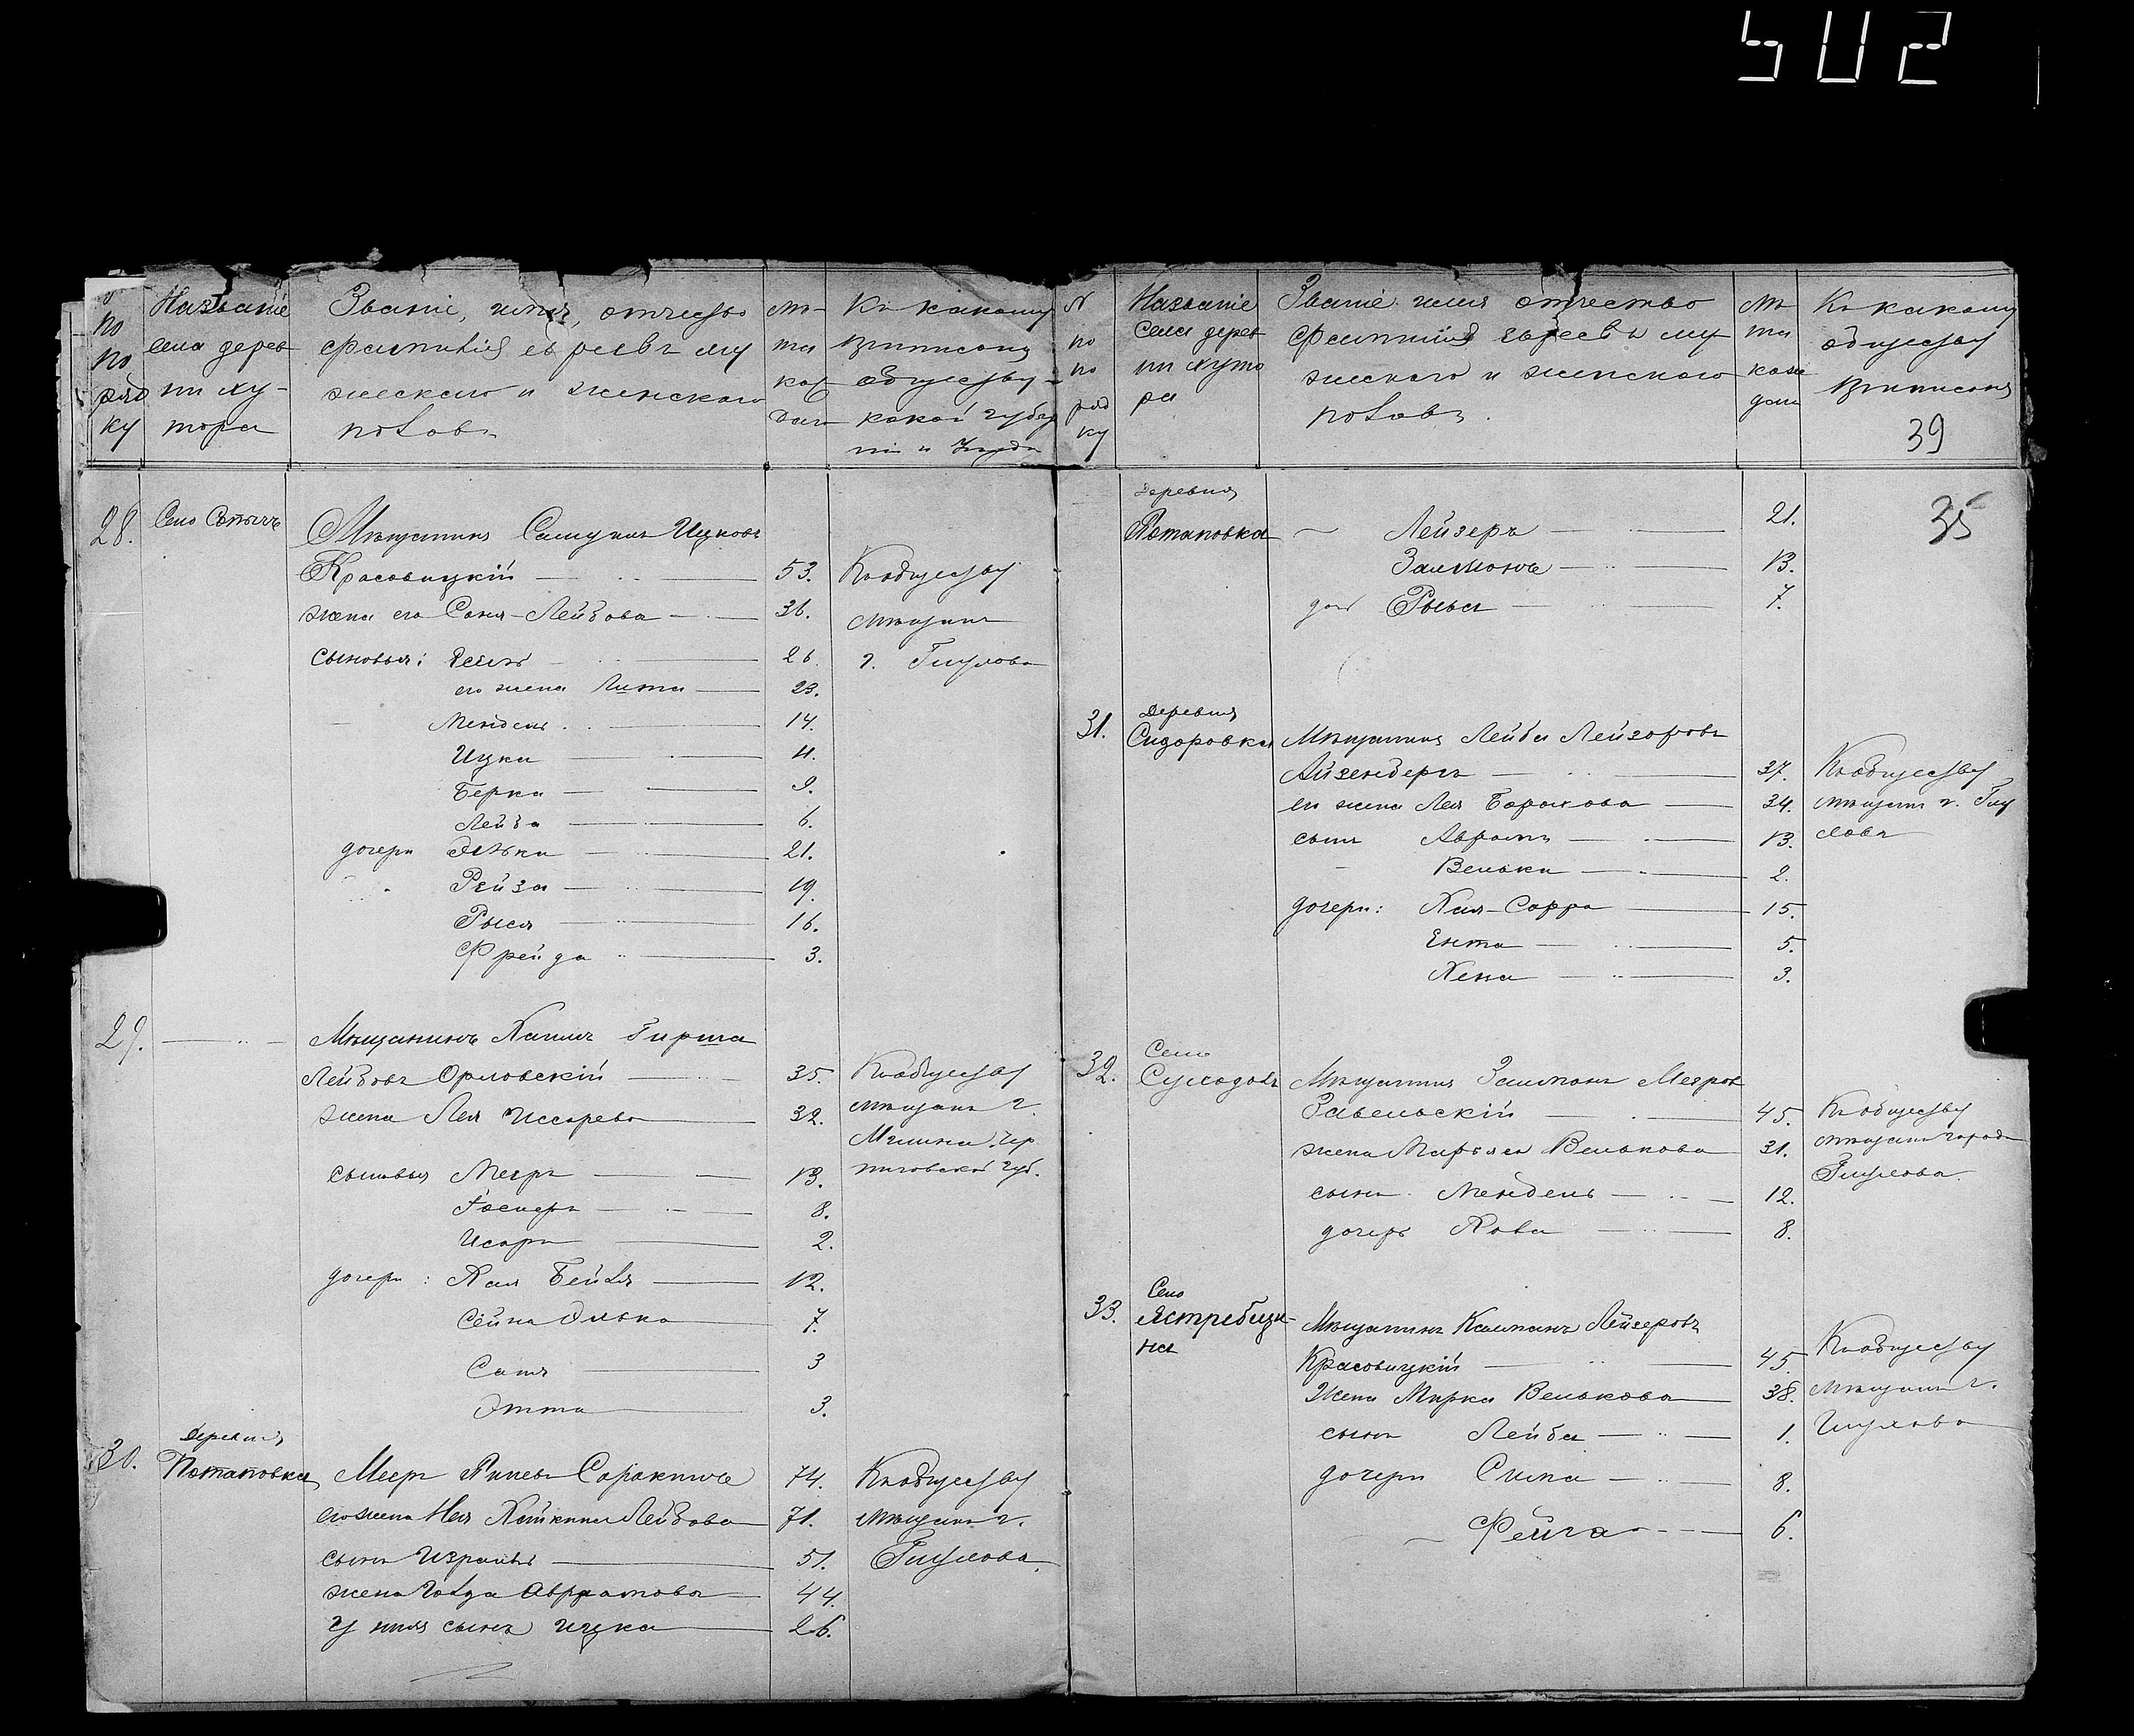 502
№ по по ряд ку
Названіе села дерев ни ху- тора
Званіе, имя, отчество фамилія евреевъ му жескаго и женскаго половъ
Лѣ- та каж даго
Къ какому приписаны обществу какой губер ніи и Уезда
28. Село Сопычъ
Мѣщанинъ Самуилъ Ицковъ
Красовицкій 53. Къ обществу
жена его Соня-Лейбова 36. мѣщанъ
сыновья: 26. г. Глухова
его жена 23.
Мендель 14.
Ицка 11.
Берка 9.
Лейба 6.
дочери Элька 21.
Рейза 19.
Рыся 16.
Фрейда 3.
29.
Мѣщанинъ Хаимъ Гирша
Лейбовъ Орловскій 35. Къ обществу
жена Лея 32. мѣщанъ г.
Мглина, Чер
сыновья Мееръ 13. ниговской губ.
8.
2.
дочери: Хая Бейля 12.
Элька 7.
3
Этта 3.
Деревня
30. Потаповка Меер Сорокинъ 74. Къ обществу
его жена Лейбова 71. мѣщанъ г.
сынъ Израиль 51. Глухова.
жена Голда Аврамова 44.
У нихъ сынъ Ицка 26.
№ по по ряд ку
Названіе села дерев ни хуто ра
Званіе имя отчество фамилія евреевъ му жескаго и женскаго половъ.
Лѣ та каж даго
Къ какому обществу приписаны
39
35
Деревня
Потаповка Лейзеръ 21.
Залмонъ 13.
доч Рыся 7.
Деревня
31. Сидоровка Мѣщанинъ Лейба Лейзоровъ
Айзенбергъ 37. Къ обществу
его жена Лея Борохова 34. мѣщанъ г. Глу
сынъ Аврамъ 13. хова
Велька 2.
дочери: Хая-Сорра 15.
Ента 5.
Хена 3.
Село
32. Суходолъ Мѣщанинъ Залманъ Мееров
45. Къ обществу
жена Марьяся Велькова 31. мѣщанъ города
Глухова.
сынъ Мендель 12.
дочерь 8.
Село
33. Ястребщи- на Мѣщанинъ Калманъ Лейзеровъ
Красовицкій 45. Къ обществу
Жена Мирка Велькова 38. мѣщанъ г.
сынъ Лейба 1. Глухова
дочери Сима 8.
Фейга 6.